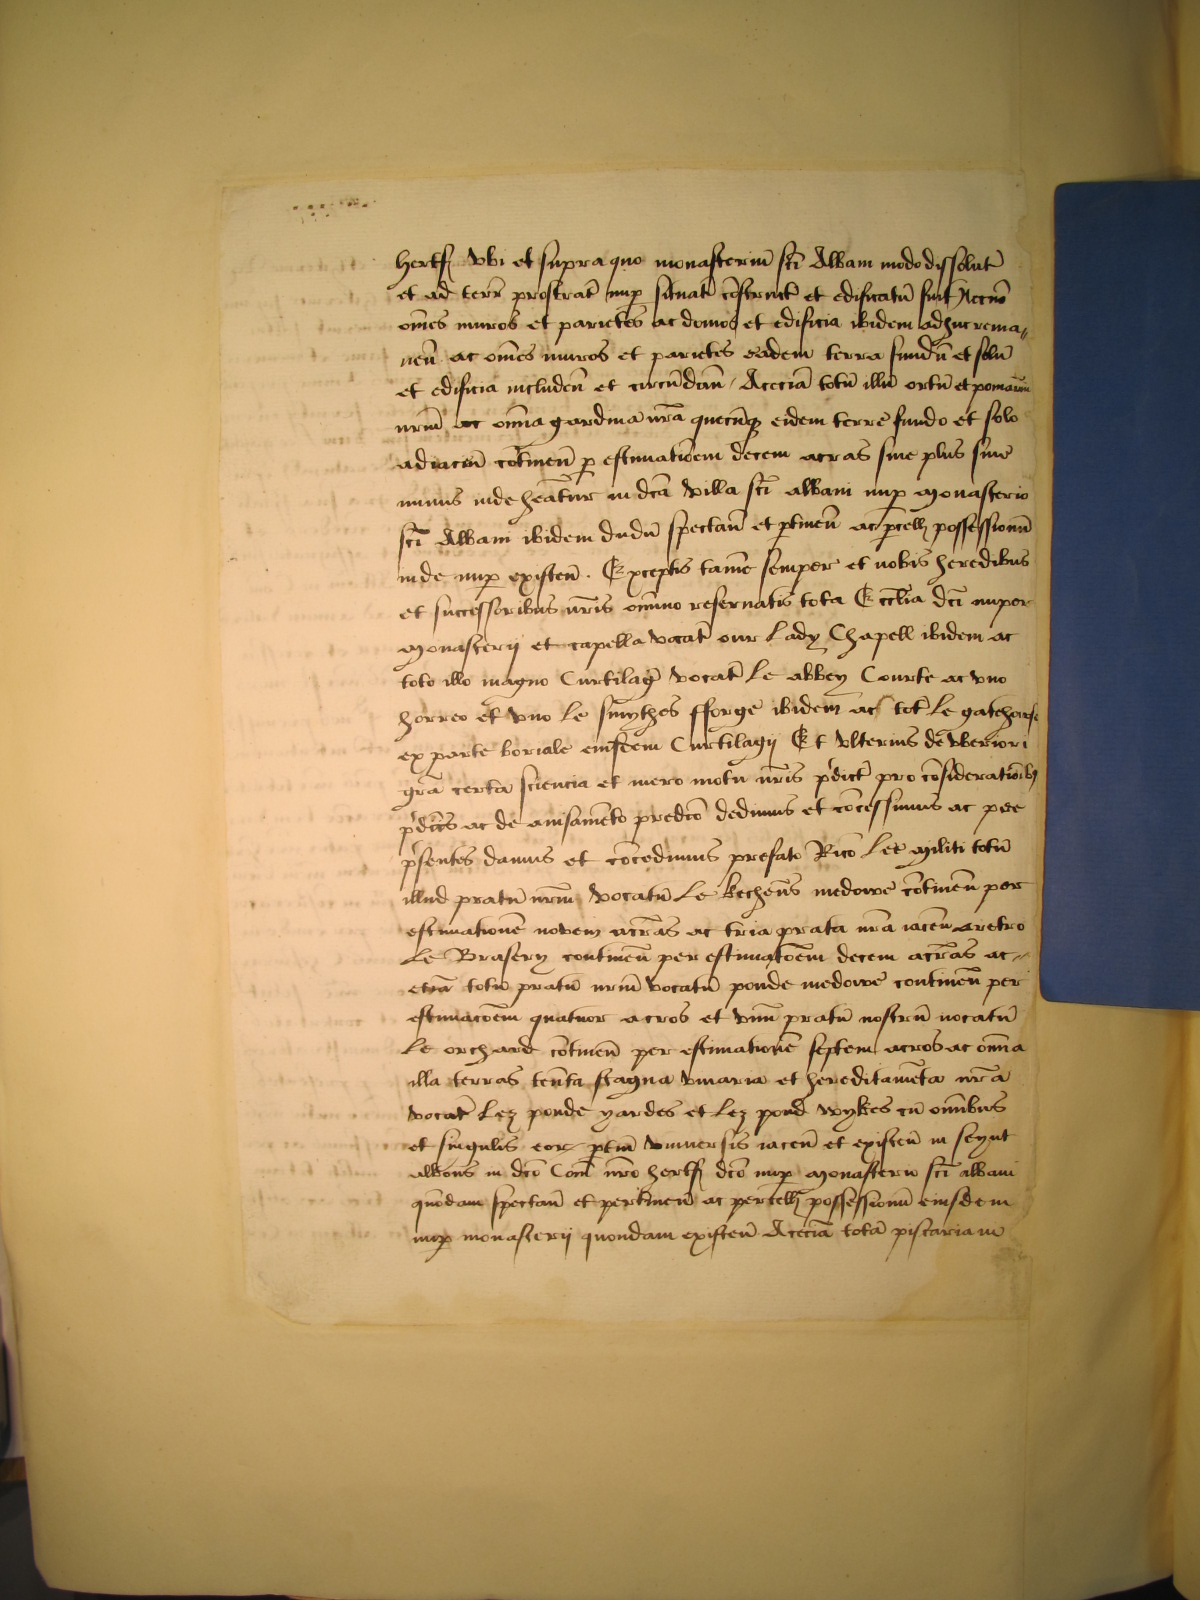 hertf̄ Vbi et supra quo monasteriū scī Albani modo dissolut̄
et ad terr̄ prostrat̄ nup̄ situat̄ cōstruct̄ et edificatū fuit Necnō
om̄es muros et parietes ac domos et edificia ibidem adhuc rema„
neñ ac om̄es muros et parietes eadem terra fundū et solū
et edificia includeñ et circūdāñ / Aceciā totū illū ortū et pomariū
nr̄m ac om̄ia gardina nr̄a quecūq̨ eidem terre fundo et solo
adiaceñ cōtineñ p̱ estimatiōem decem acras siue plus siue
minus inde heāntur in dcā Villa scī albani nup̄ Monasterio
scī Albani ibidem dudū spectāñ et p̱tineñ ac p̱cell̄ possessionū
inde nup̄ existeñ . Exceptis tamē semper et nobis heredibus
et successoribus nr̄is om̄ino reseruatis tota Eccl̄ia dcī nuper
Monasterij et capella vocat̄ our Lady Chapell ibidem ac
toto illo magno Curtilaḡ vocat̄ Le abbey Courte ac vno
horreo et vno le smythes fforge ibidem ac tot̄ Le gatehouse
ex parte boriale eiusdem Curtilagij Et vlterius de vberiori
grā certa sciencia et mero motu nr̄is p̄dict̄ pro cōsideratiōibȝ
p̄dcīs ac de auisamēto predcō dedimus et cōcessimus ac per
p̄sentes damus et cōcedimus prefato Ricō Lee Militi totū
illud pratū nr̄m vocatū Le kecheñs medowe cōtineñ per
estimationē novem acras ac tria prata nr̄a iaceñ aretro
Le Brasery contineñ per estimatōem decem acras ac„
etiā totū pratū nr̄m vocatū ponde medowe contineñ per
estimacōem quatuor acros et vnū pratū nostrū uocatū
Le orchard cōtineñ per estimationē septem acros ac om̄ia
illa terras teñta stagna viuaria et hereditamēta nr̄a
vocat̄ Lez ponde yardes et Lez pond wykes cū om̄ibus
et singulis eor̄ p̱tiñ vniuersis iaceñ et existeñ in seynt
albons in dcō Com̄ nr̄o hertf̄ dcō nup̄ Monasterio scī albani
quōdam spectāñ et pertineñ ac percell̄ possessionū eiusdem
nup̄ monasterij quondam existeñ Aceciā totā piscariam